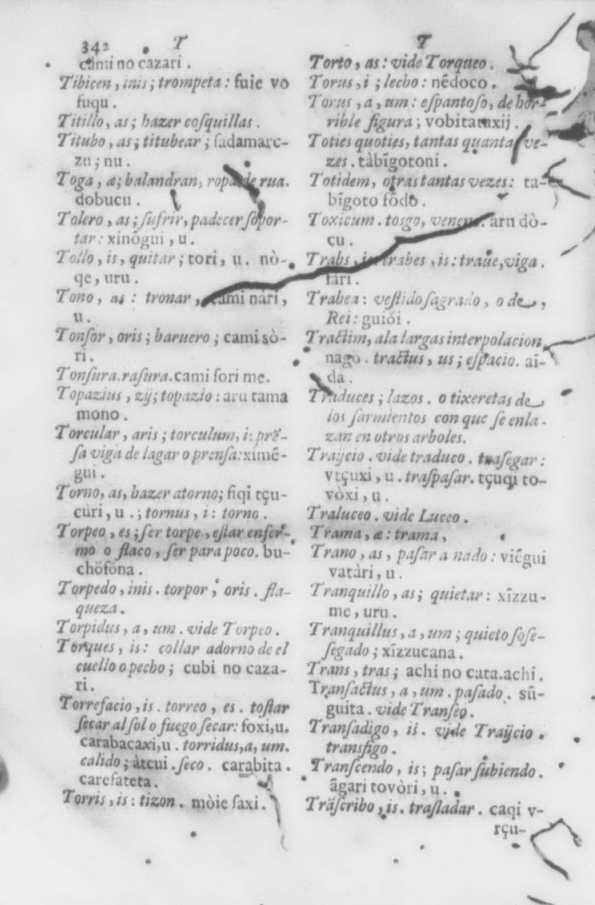 342 T
cami no cazari.
Tibicen, inis; trompeta: fuie vo
fuqu.
Titillo, as; hazer cosquillas.
Titubo, as; titubear; fadamare-
zu; nu.
Toga, æ; balandran, ropa de rua.
dobucu.
Tolero, as; sufrir, padecer sopor-
tar: xinôgui, u.
Tollo, is, quitar; tori, u. nò-
qe, uru.
Tono, as: tronar, cami nari,
u.
Tonsor, oris; baruero; cami sò-
ri.
Tonsura. rasura. cami sori me.
Topazius, zij; topazio: aru tama
mono.
Torcular, aris; torculum, i: prē-
sa viga de lagar o prensa: ximē-
gui.
Torno, as, hazer atorno; fiqi tçu-
curi, u.; tornus, i: torno.
Torpeo, es; ser torpe, estar enfer-
mo o flaco, ser para poco. bu-
chōfōna.
Torpedo, inis. torpor, oris. fla-
queza.
Torpidus, a, um. vide Torpeo.
Torques, is: collar adorno de el
cuello o pecho; cubi no caza-
ri.
Torrefacio, is. torreo, es. tostar
secar al sol o fuego secar: foxi, u.
carabacaxi, u. torridus, a, um.
calido; àtcui. seco. carabita.
carefateta.
Torris, is: tizon. mòie saxi.
T
Torto, as: vide Torqueo.
Torus, i; lecho: nēdoco.
Torus, a, um: espantoso, de hor-
rible figura; vobitatuxij.
Toties quoties, tantas quantas ve-
zes. tàbīgotoni.
Totidem, otras tantas vezes: ta-
bīgoto fodo.
Toxicum. tosgo, veneno. aru dò-
cu.
Trabs, is trabes, is: traue, viga.
fari.
Trabea: vestido sagrado, o de
Rei: guiói.
Tractim, ala largas interpolacion
nago. tractus, us; espacio. aī-
da.
Traduces; lazos. o tixeretas de
los sarmientos con que se enla-
zan en otros arboles.
Traijcio. vide traduco. trasegar:
vtçuxi, u. traspasar. tçuqi to-
vòxi, u.
Traluceo. vide Luceo.
Trama, æ: trama,
Trano, as, pasar a nado: viēgui
vatàri, u.
Tranquillo, as; quietar: xīzzu-
me, uru.
Tranquillus, a, um; quieto sose-
segado; xizzucana.
Trans, tras; achi no cata. achi.
Transactus, a, um. pasado. sū-
guita. vide Transeo.
Transadigo, is. vide Traijcio.
transfigo.
Transcendo, is; pasar subiendo.
āgari tovòri, u.
Trāscribo, is. trasladar. caqi v-
rçu-